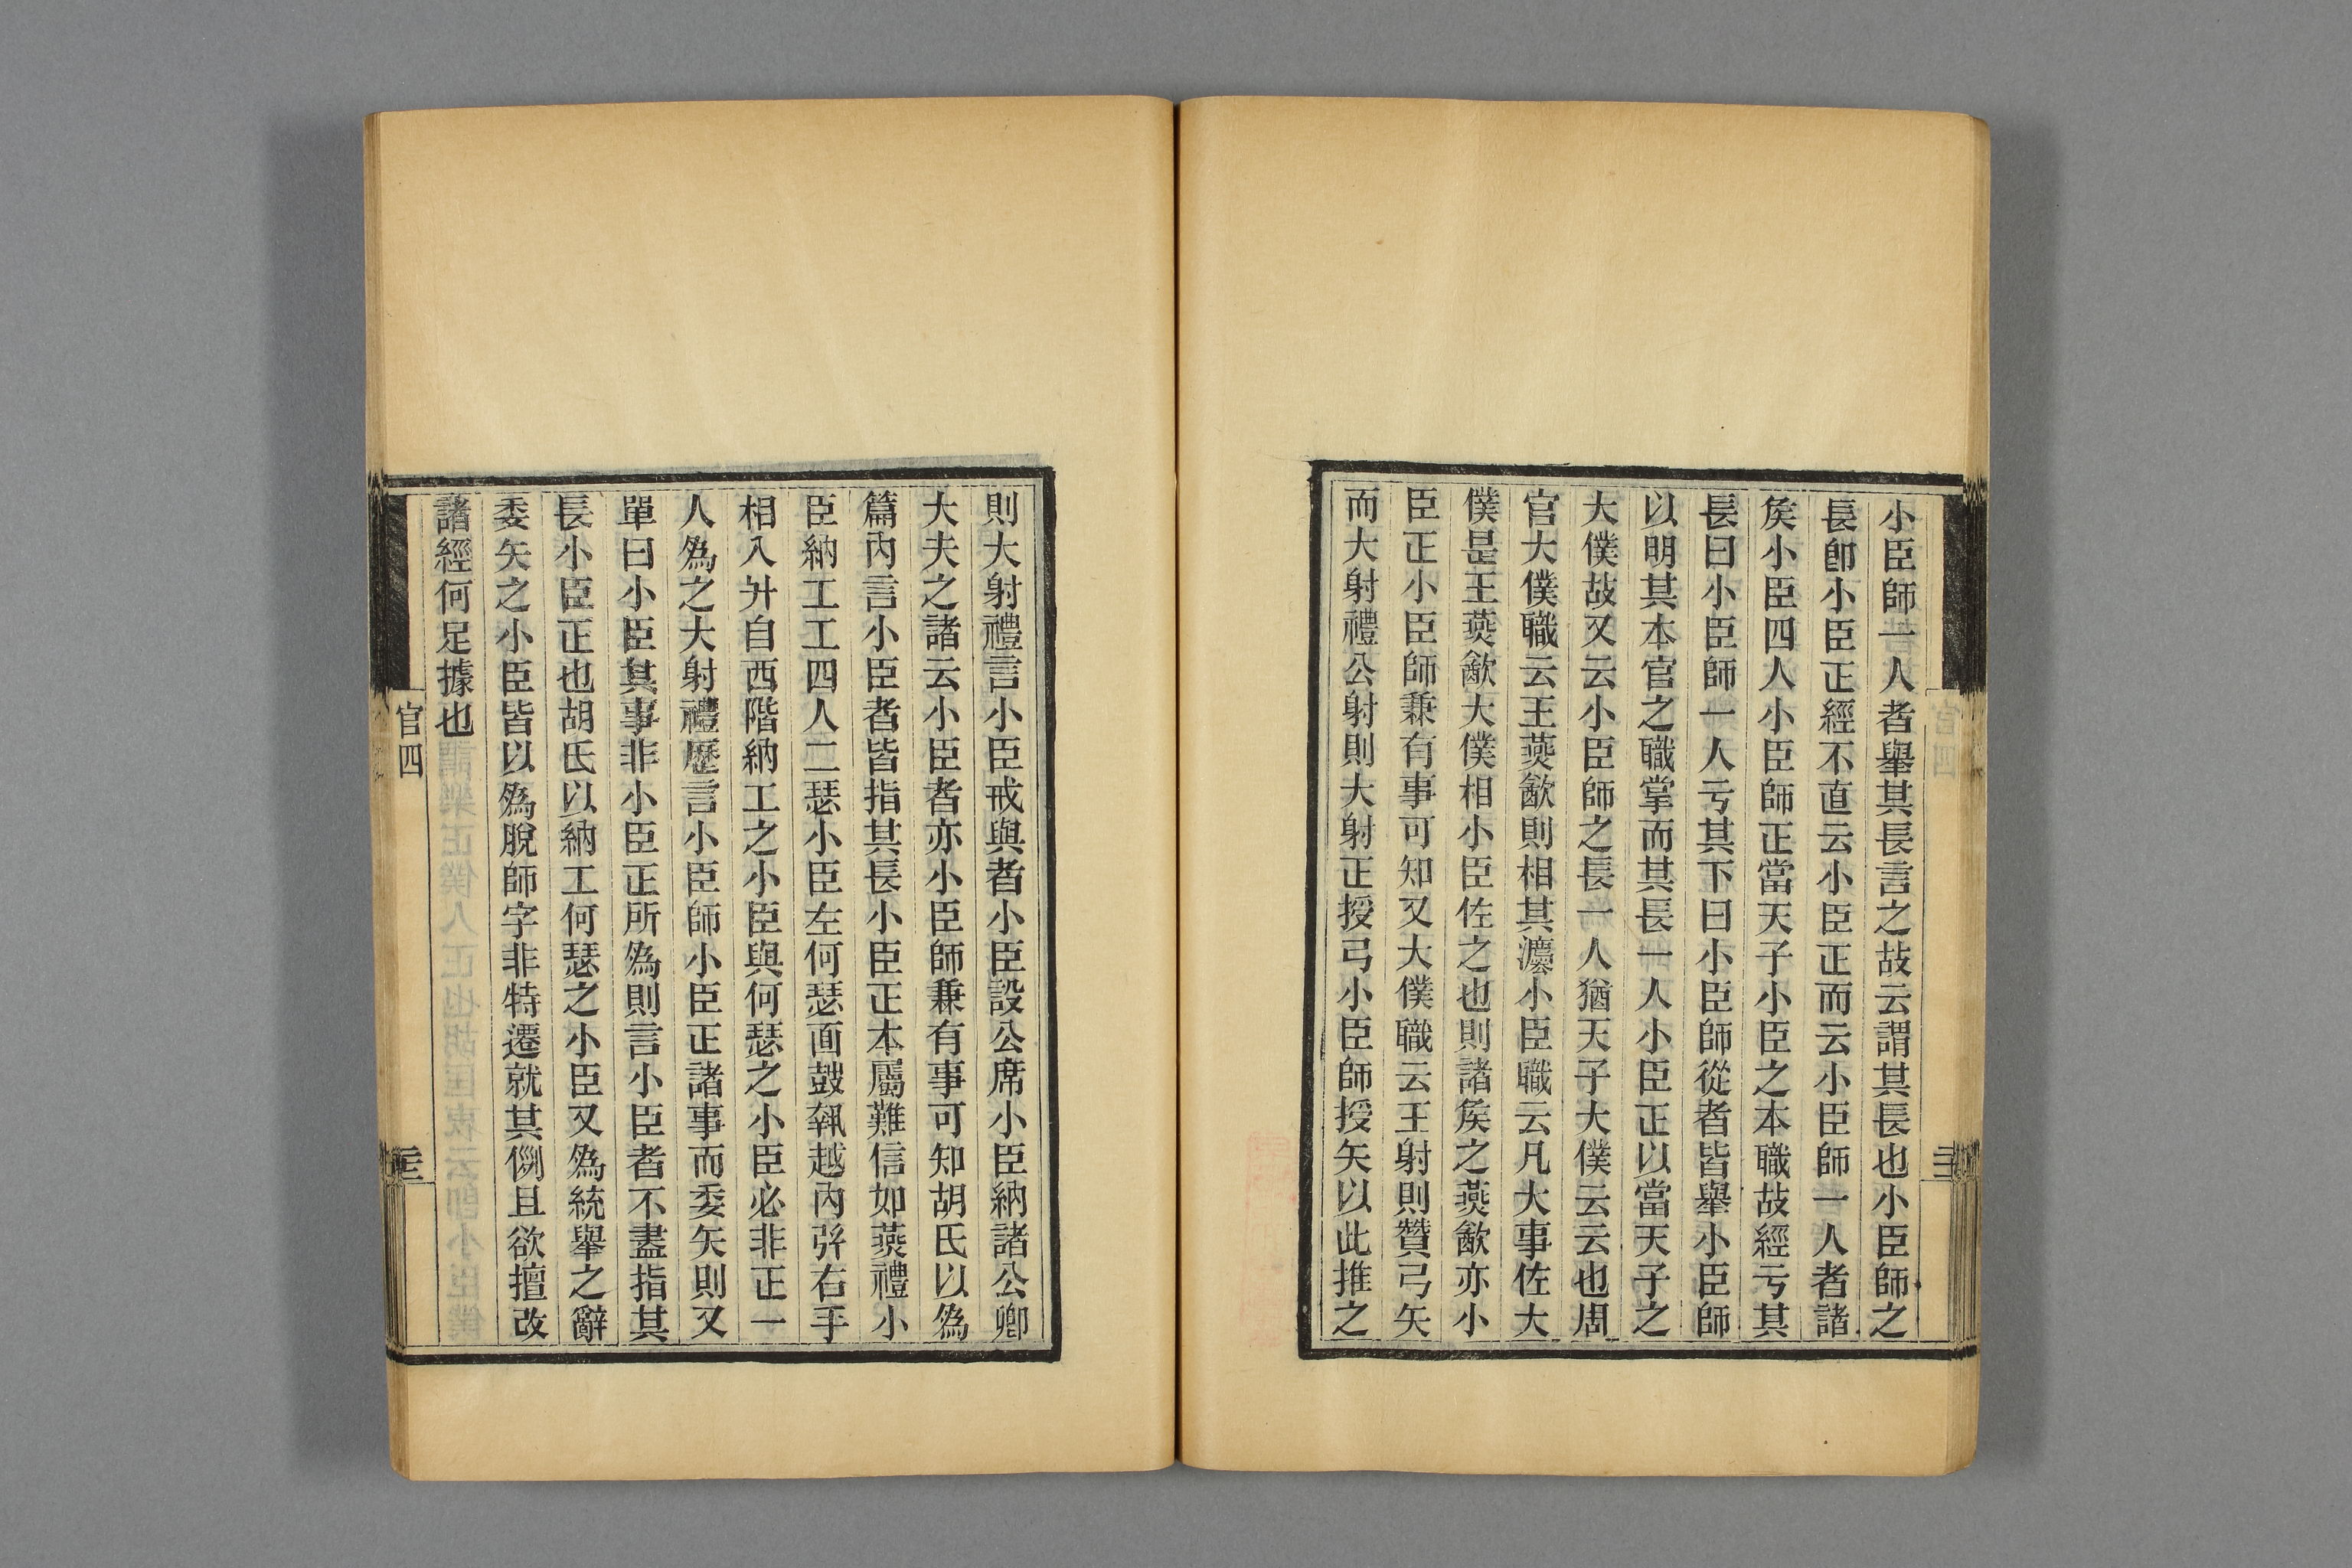 小臣師一人者舉其長言之故云謂其長也小臣師之
長卽小臣正經不直云小臣正而云小臣師一人者諸
矦小臣四人小臣師正當天子小臣之本職故經亏其
長曰小臣師一人亏其下曰小臣師從者皆舉小臣師
以明其本官之職掌而其長一人小臣正以當天子之
大僕故又云小臣師之長一人猶天子大僕云云也周
官大僕職云王燕飮則相其灋小臣職云凡大事佐大
僕是王燕飮大僕相小臣佐之也則諸矦之燕飮亦小
臣正小臣師兼有事可知又大僕職云王射則贊弓矢
而大射禮公射則大射正授弓小臣師授矢以此推之
則大射禮言小臣戒與者小臣設公席小臣納諸公卿
大夫之諸云小臣者亦小臣師兼有事可知胡氏以爲
篇內言小臣者皆指其長小臣正本屬難信如燕禮小
臣納工工四人二瑟小臣左何瑟面鼓執越內弦右手
相入升自西階納工之小臣與何瑟之小臣必非正一
人爲之大射禮歷言小臣師小臣正諸事而委矢則又
單曰小臣其事非小臣正所爲則言小臣者不盡指其
長小臣正也胡氏以納工何瑟之小臣又爲統舉之辭
委矢之小臣皆以爲脫師字非特遷就其例且欲擅改
諸經何足據也
官四